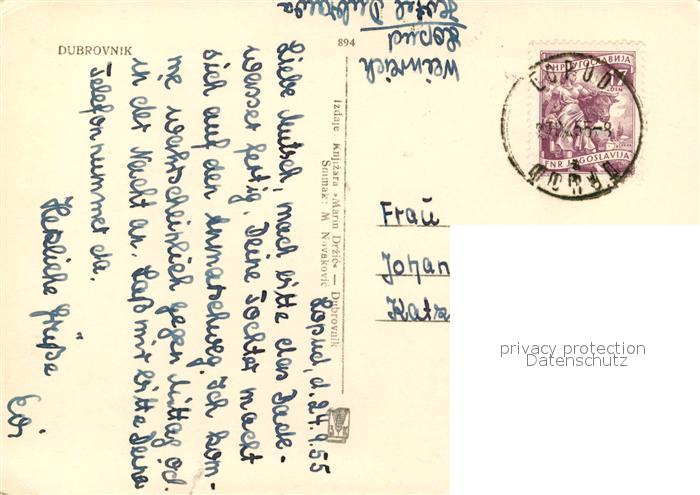 DUBROVNIK
894
Weinreich
Lopud
Hotel Dubrava
Lopud, d. 24.9.55
Liebe Mutsch, mach bitte das Bade-
wasser fertig. Deine Tochter macht
sich auf den Anmarschweg. Ich kom-
me wahrscheinlich gegen Mittag od.
in der Nacht an. Laß mir bitte Deine
Telefonnummer da.
Herzliche Grüße
Evi
Izdaje Knjižara »Marin Držić« — Dubrovnik
Snimak: M. Novaković
FNR JUGOSLAVIJA
LOPUD
ЛОПУД
Frau
Johan
Katz
privacy protection
Datenschutz